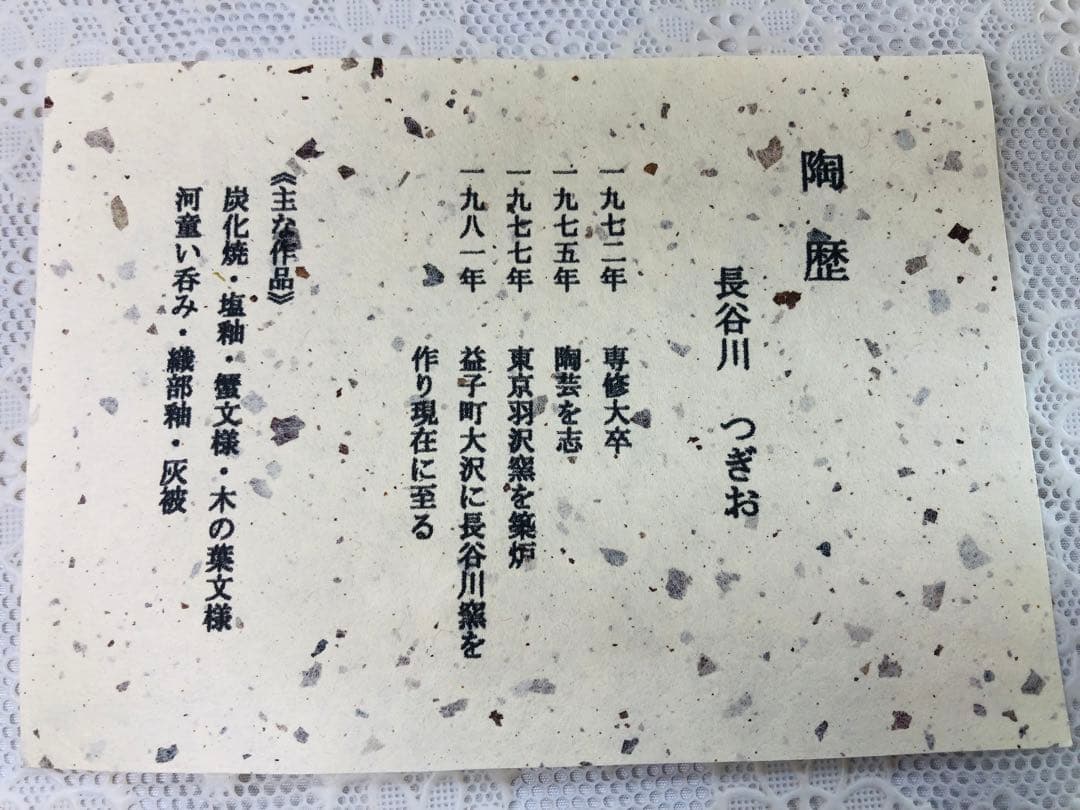 陶歴
長谷川 つぎお
一九七二年 専修大卒
一九七五年 陶芸を志
一九七七年 東京羽沢窯を築炉
一九八一年 益子町大沢に長谷川窯を
作り現在に至る
《主な作品》
炭化焼・塩釉・蟹文様・木の葉文様
河童い呑み・織部釉・灰被